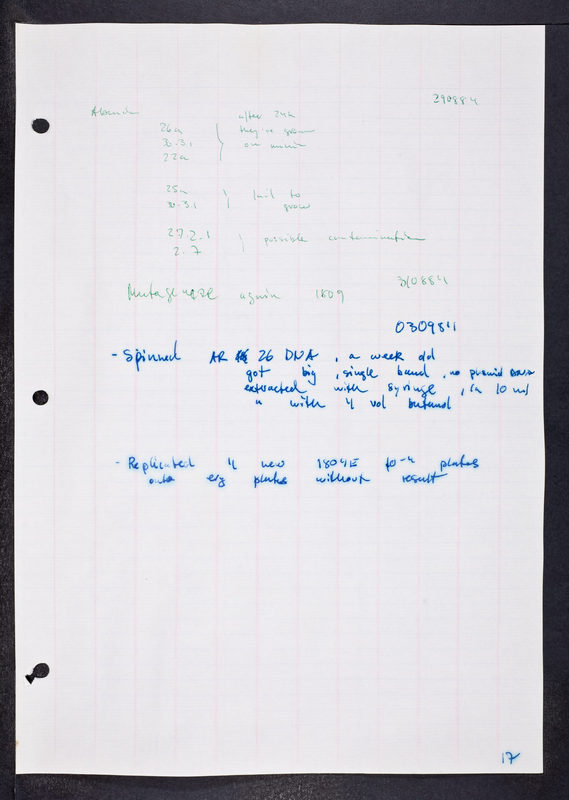 290884
after 24h
26a they've grown
30.3.1 on
22a
25a fail to
30.3.1 grow
27.2.1 possible contamination
2.7
310884
Mutagenese again 1809
030984
- Spinned AR 26 DNA, a week old
got big, single band, no plasmid
extracted with syringe, ca 10 ml
" with 4 vol butanol
- Replicated 4 new 1809E 10-4 plates
onto erg plates without result
17